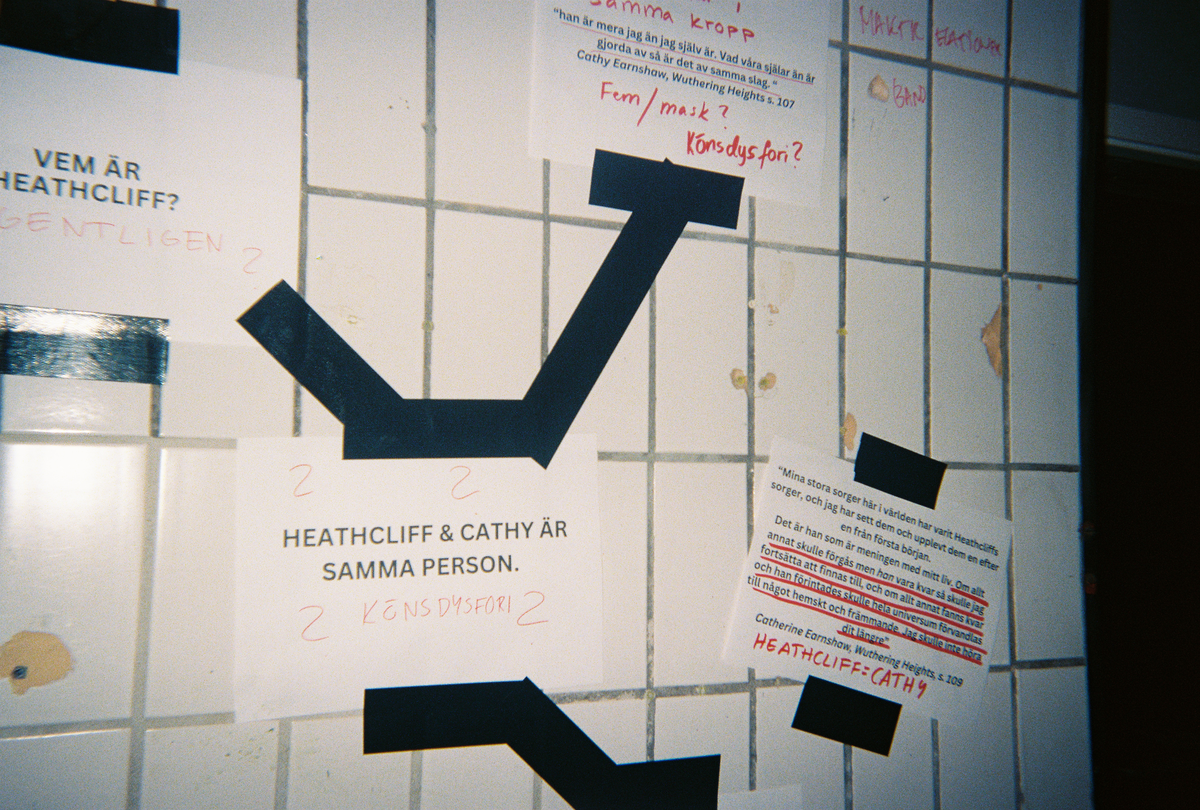 samma kropp
"han är mera jag än jag själv är. Vad våra själar än är
gjorda av så är det av samma slag."
Cathy Earnshaw, Wuthering Heights s. 107
Fem/mask?
Könsdysfori?
BAND
VEM ÄR
HEATHCLIFF?
GENTLIGEN ?
? ?
HEATHCLIFF & CATHY ÄR
SAMMA PERSON.
? KÖNSDYSFORI ?
"Mina stora sorger här i världen har varit Heathcliffs
sorger, och jag har sett dem och upplevt dem en efter
en från första början.
Det är han som är meningen med mitt liv. Om allt
annat skulle förgås men han vara kvar så skulle jag
fortsätta att finnas till, och om allt annat fanns kvar
och han förintades skulle hela universum förvandlas
till något hemskt och främmande. Jag skulle inte höra
dit längre"
Catherine Earnshaw, Wuthering Heights, s. 109
HEATHCLIFF=CATHY